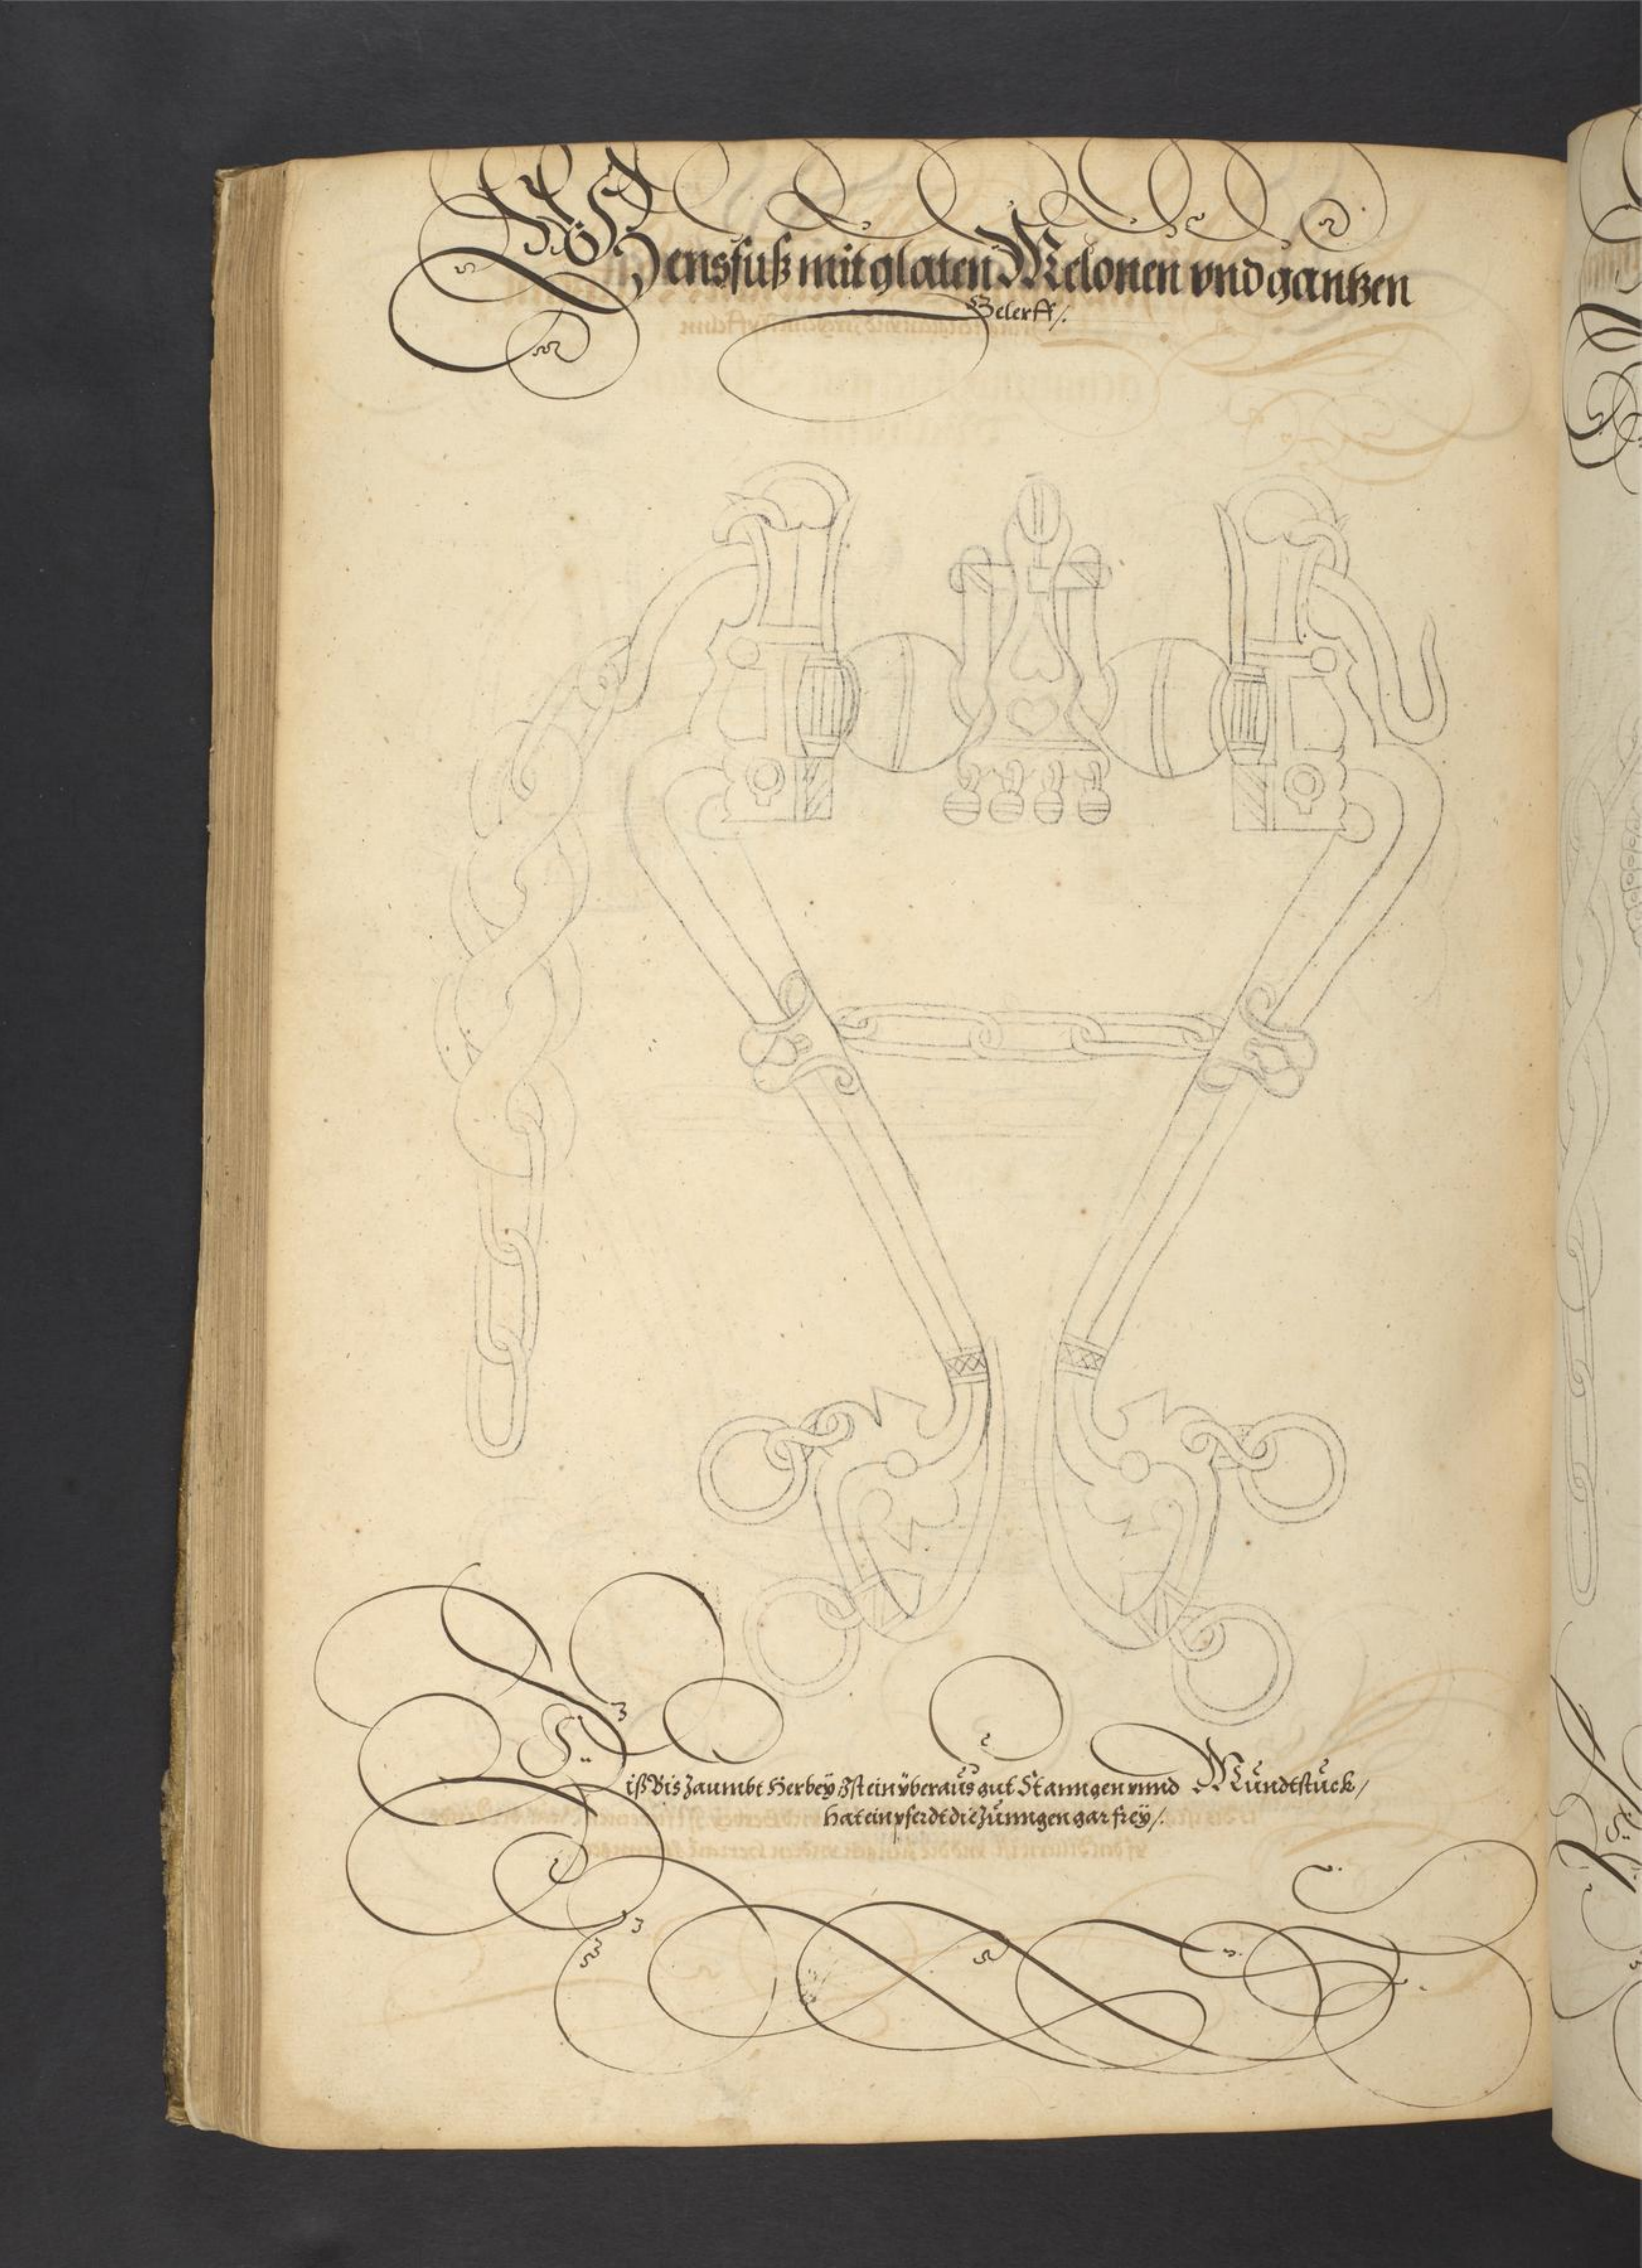 Gensfuß mit glaten Melonen vnd gantzen
Gelerff /.
Diß Bis Zaumbt Herbeÿ Ist ein ÿberaus gut Stanngen vnnd Mundtstuck /
hat ein pferdt die Zunngen gar freÿ /.